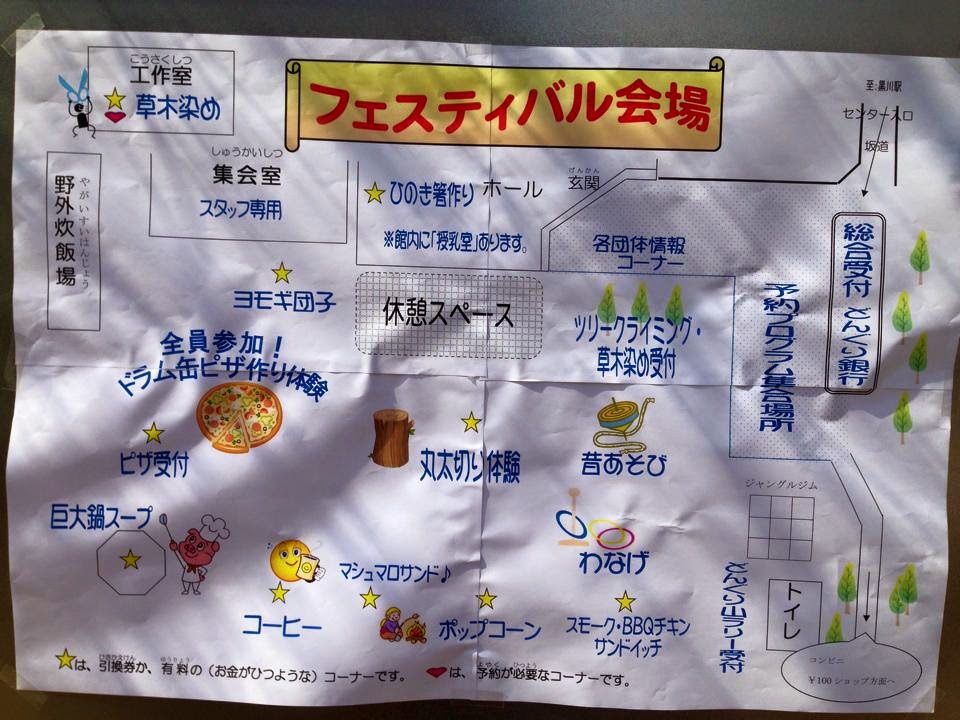 こうさくしつ
工作室
草木染め
フェスティバル会場
至:黒川駅
センター入口
坂道
やがいすいはんじょう
野外炊飯場
しゅうかいしつ
集会室
スタッフ専用
ひのき箸作り
ホール
※館内に「授乳室」あります。
げんかん
玄関
各団体情報
コーナー
総合受付 どんぐり銀行
予約プログラム集合場所
ヨモギ団子
休憩スペース
ツリークライミング・
草木染め受付
全員参加!
ドラム缶ピザ作り体験
ピザ受付
丸太切り体験
昔あそび
巨大鍋スープ
わなげ
ジャングルジム
コーヒー
マシュマロサンド♪
ポップコーン
スモーク・BBQチキン
サンドイッチ
どんぐり山ラリー受付
トイレ
コンビニ
¥100ショップ方面へ
ひきかえけん ゆうりょう
★は、引換券か、有料の(お金がひつような)コーナーです。
よやく ひつよう
♥は、予約が必要なコーナーです。